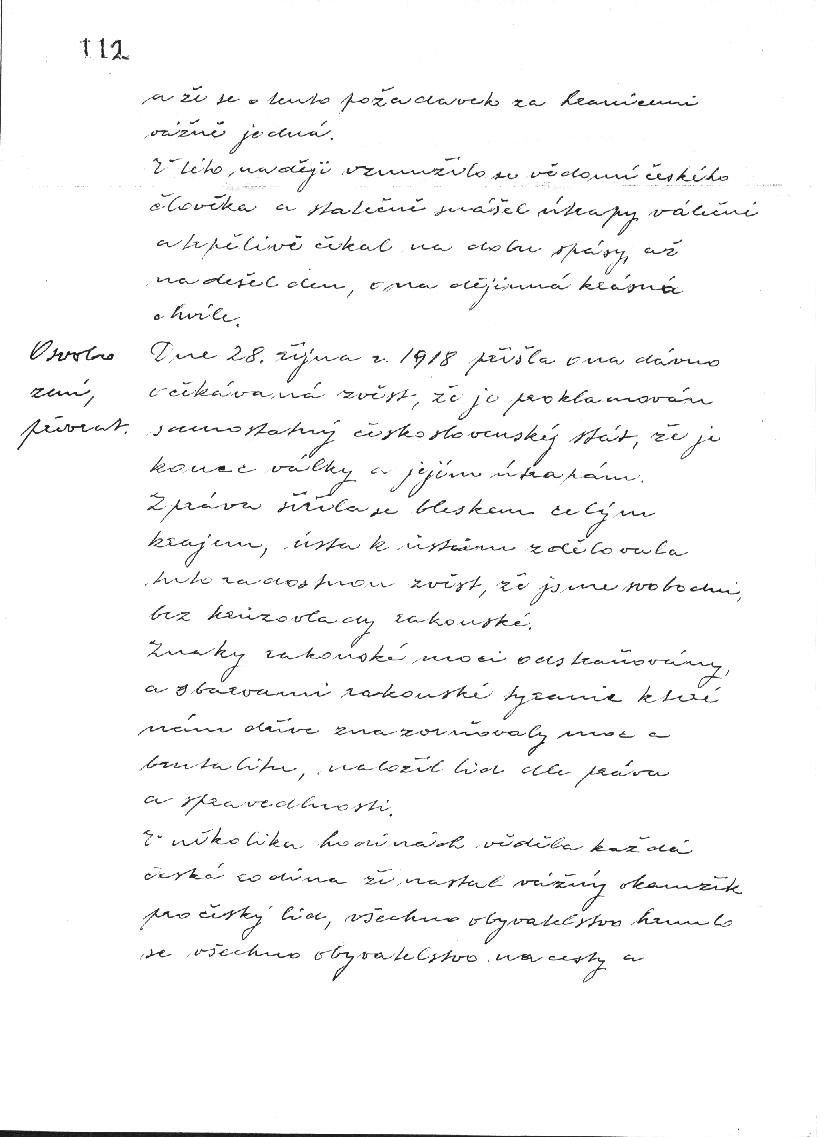 112
a že se o tento požadavek za hranicemi
vážně jedná.
V této naději vzmužilo se vědomí českého
člověka a statečně snášel útrapy válečné
a trpělivě čekal na dobu spásy, až
nadešel den, ona dějinná krásná
chvíle.
Osvobo
zení,
převrat.
Dne 28. října r. 1918 přišla ona dávno
očekávaná zvěst, že je proklamován
samostatný československý stát, že je
konec války a jejím útrapám.
Zpráva šířila se bleskem celým
krajem, ústa k ústům zdělovala
tuto radostnou zvěst, že jsme svobodni,
bez krůzovlady rakouské.
Znaky rakouské moci odstraňovány,
a s barvami rakouské tyranie které
nám dříve znazorňovaly moc a
brutalitu, naložil lid dle práva
a spravedlnosti.
V několika hodinách věděla každá
česká rodina že nastal vážný okamžik
pro český lid, všechno obyvatelstvo hrnulo
se všechno obyvatelstvo na cesty a